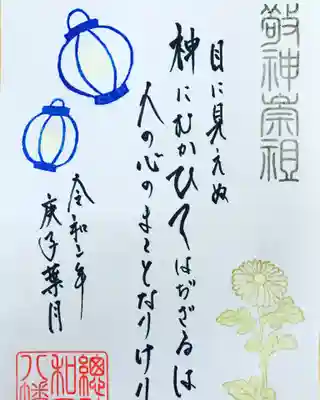 敬神崇祖
目に見えぬ
神にむかひてはぢざるは
人の心のまことなりけり
令和二年
庚子葉月
總
和
八幡